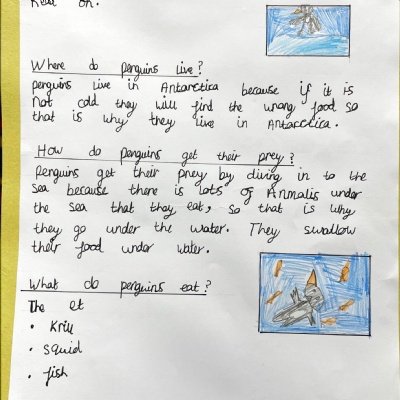 Read on.
Where do penguins live?
penguins live in Antarctica because if it is
not cold they will find the wrong food so
that is why they live in Antarctica.
How do penguins get their prey?
Penguins get their prey by diving in to the
sea because there is lots of Animalis under
the sea that they eat, so that is why
they go under the water. They swallow
their food under water.
What do penguins eat?
The et
• Krill
• squid
• fish